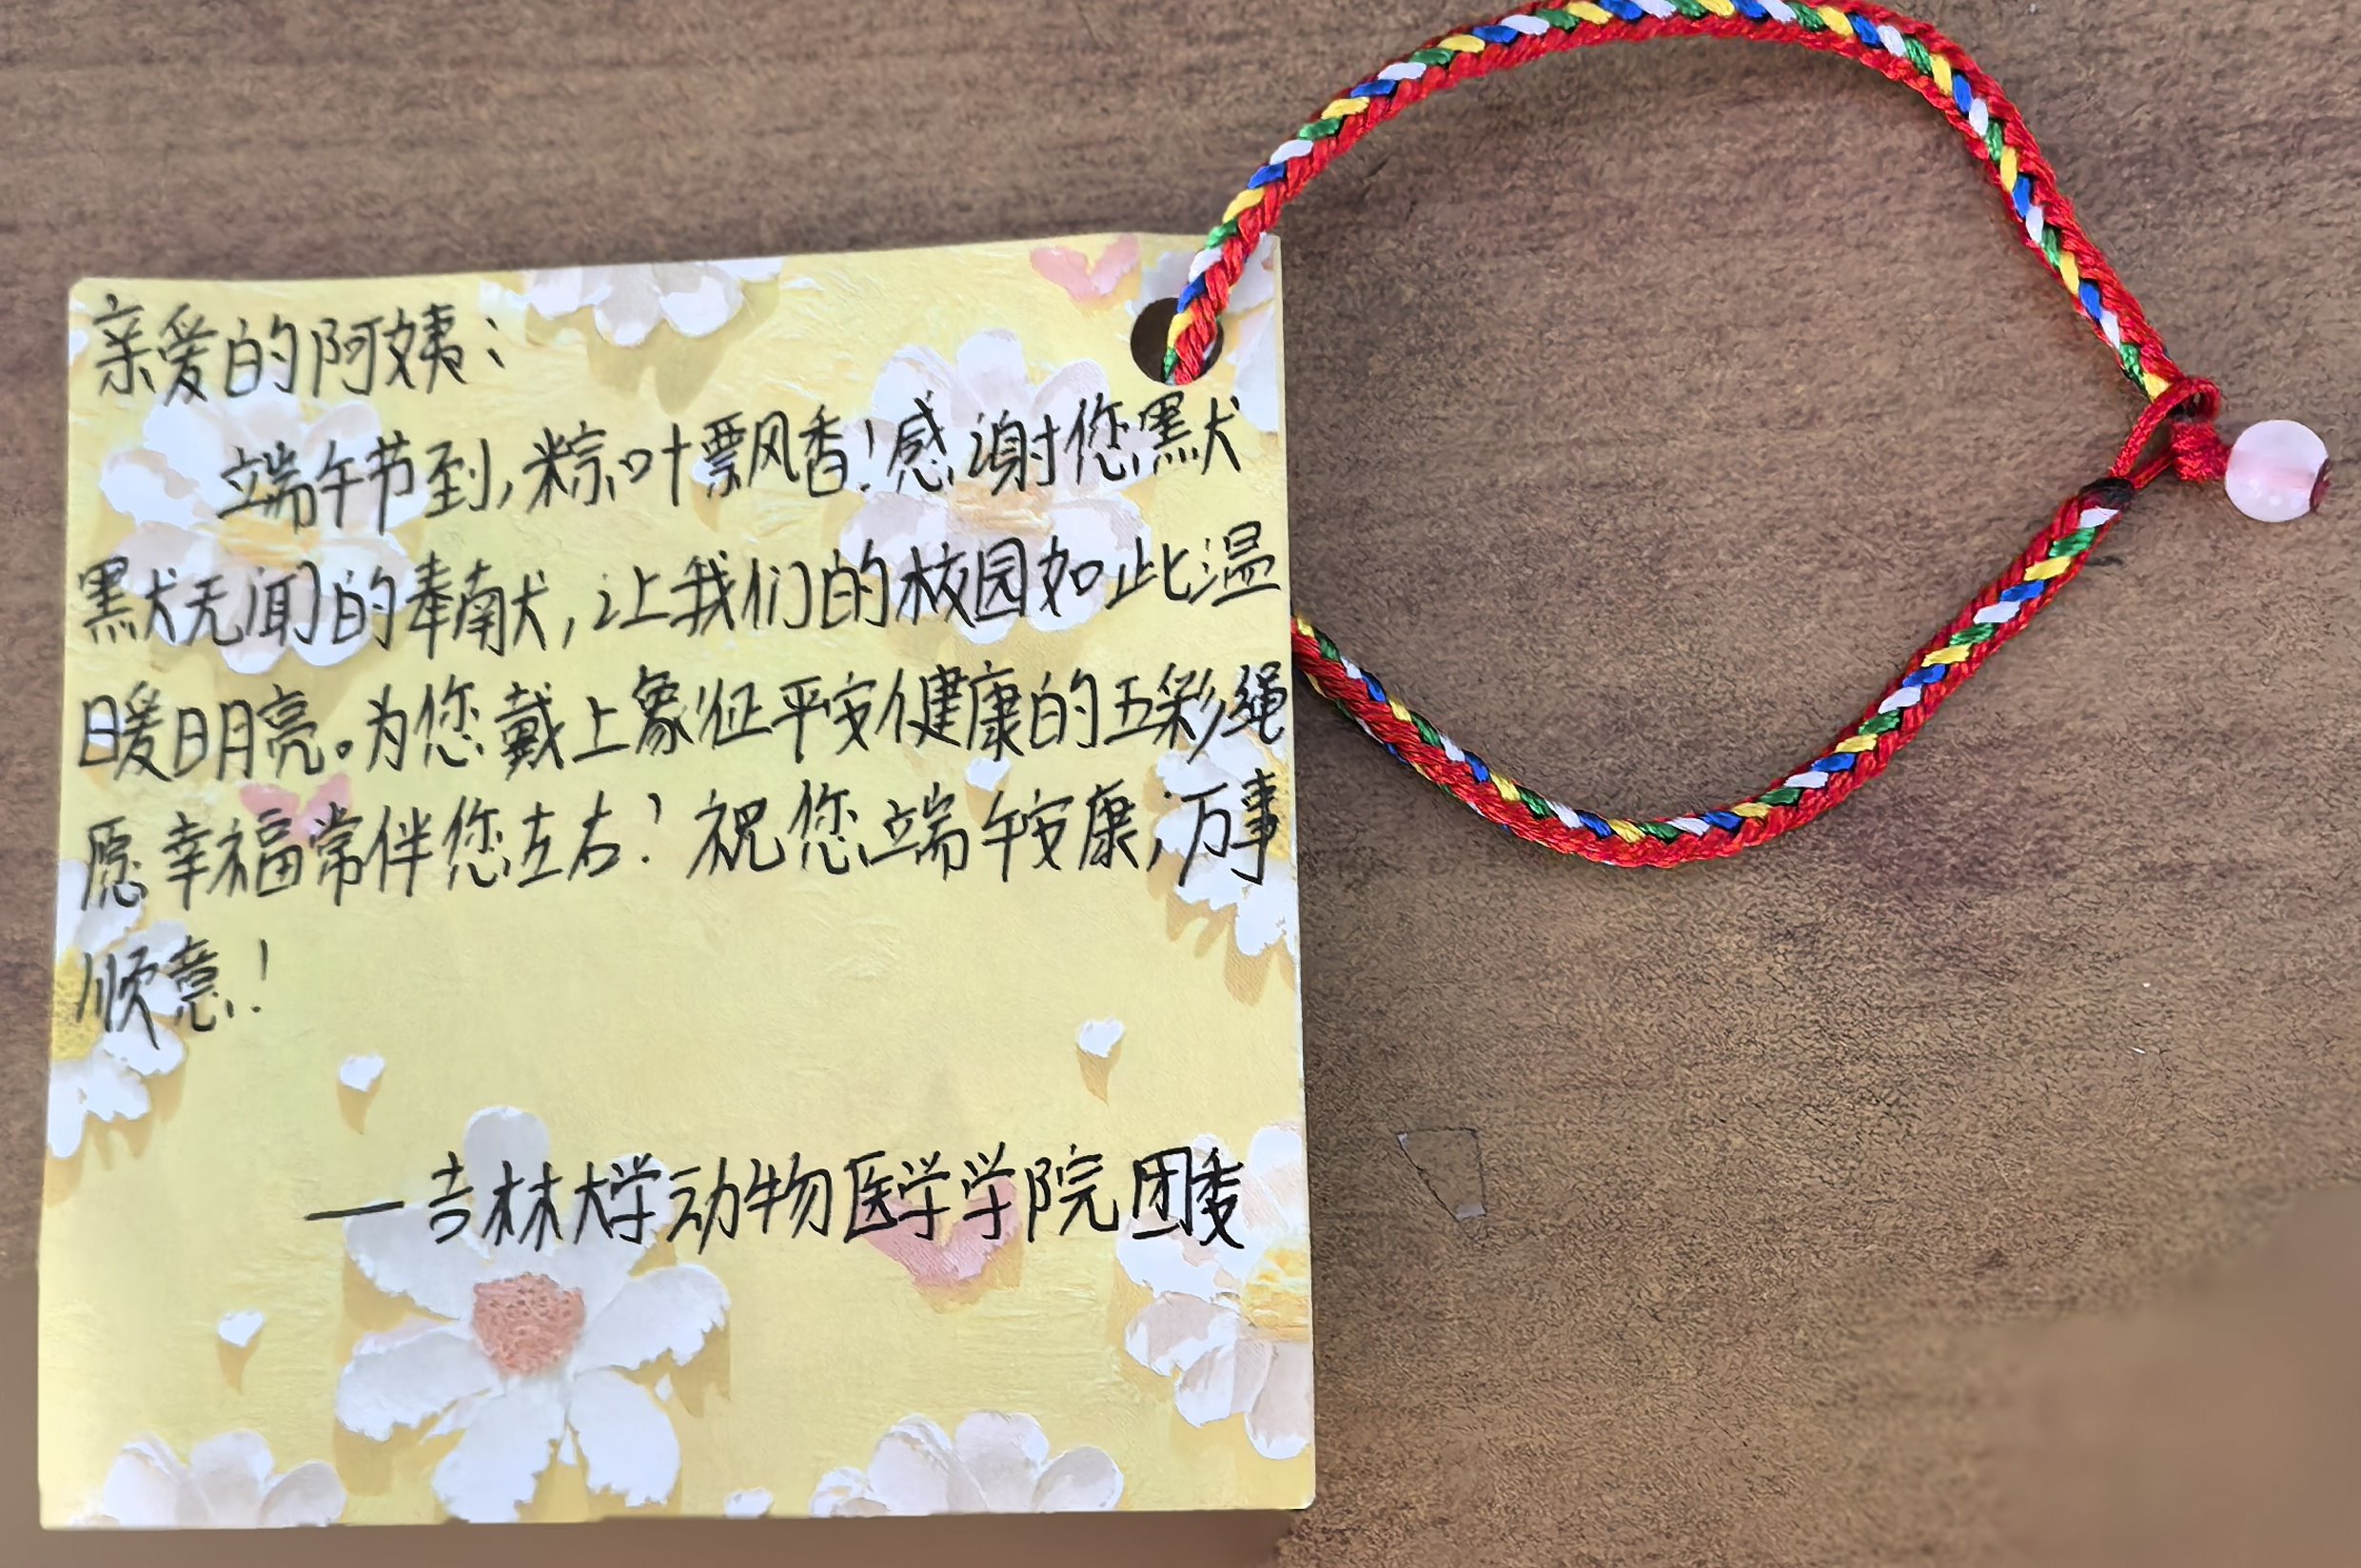 亲爱的阿姨：
端午节到，粽叶飘香！感谢您默
默无闻的奉献，让我们的校园如此温
暖明亮。为您戴上象征平安健康的五彩绳
愿幸福常伴您左右！祝您端午安康，万事
顺意！
—吉林大学动物医学学院团委